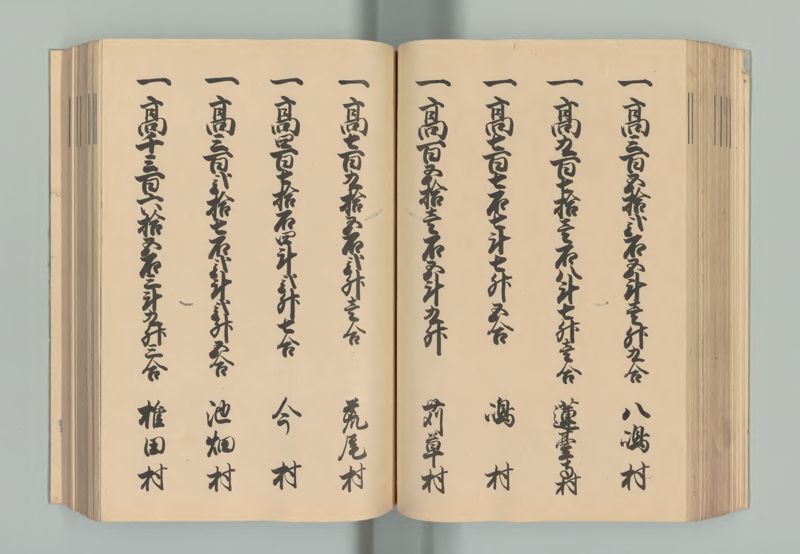 一 高三百五拾弐石五斗壱升九合 八嶋村
一 高九百七拾壱石八斗七升壱合 蓮臺寺村
一 高七百七石七斗七升五合 嶋村
一 高百五拾壱石五斗九升 苅草村
一 高七百九拾五石弐升壱合 荒尾村
一 高四百七拾石四斗弐升七合 今村
一 高三百弐拾七石弐斗弐升五合 池畑村
一 高千三百六拾五石三斗九升三合 椎田村